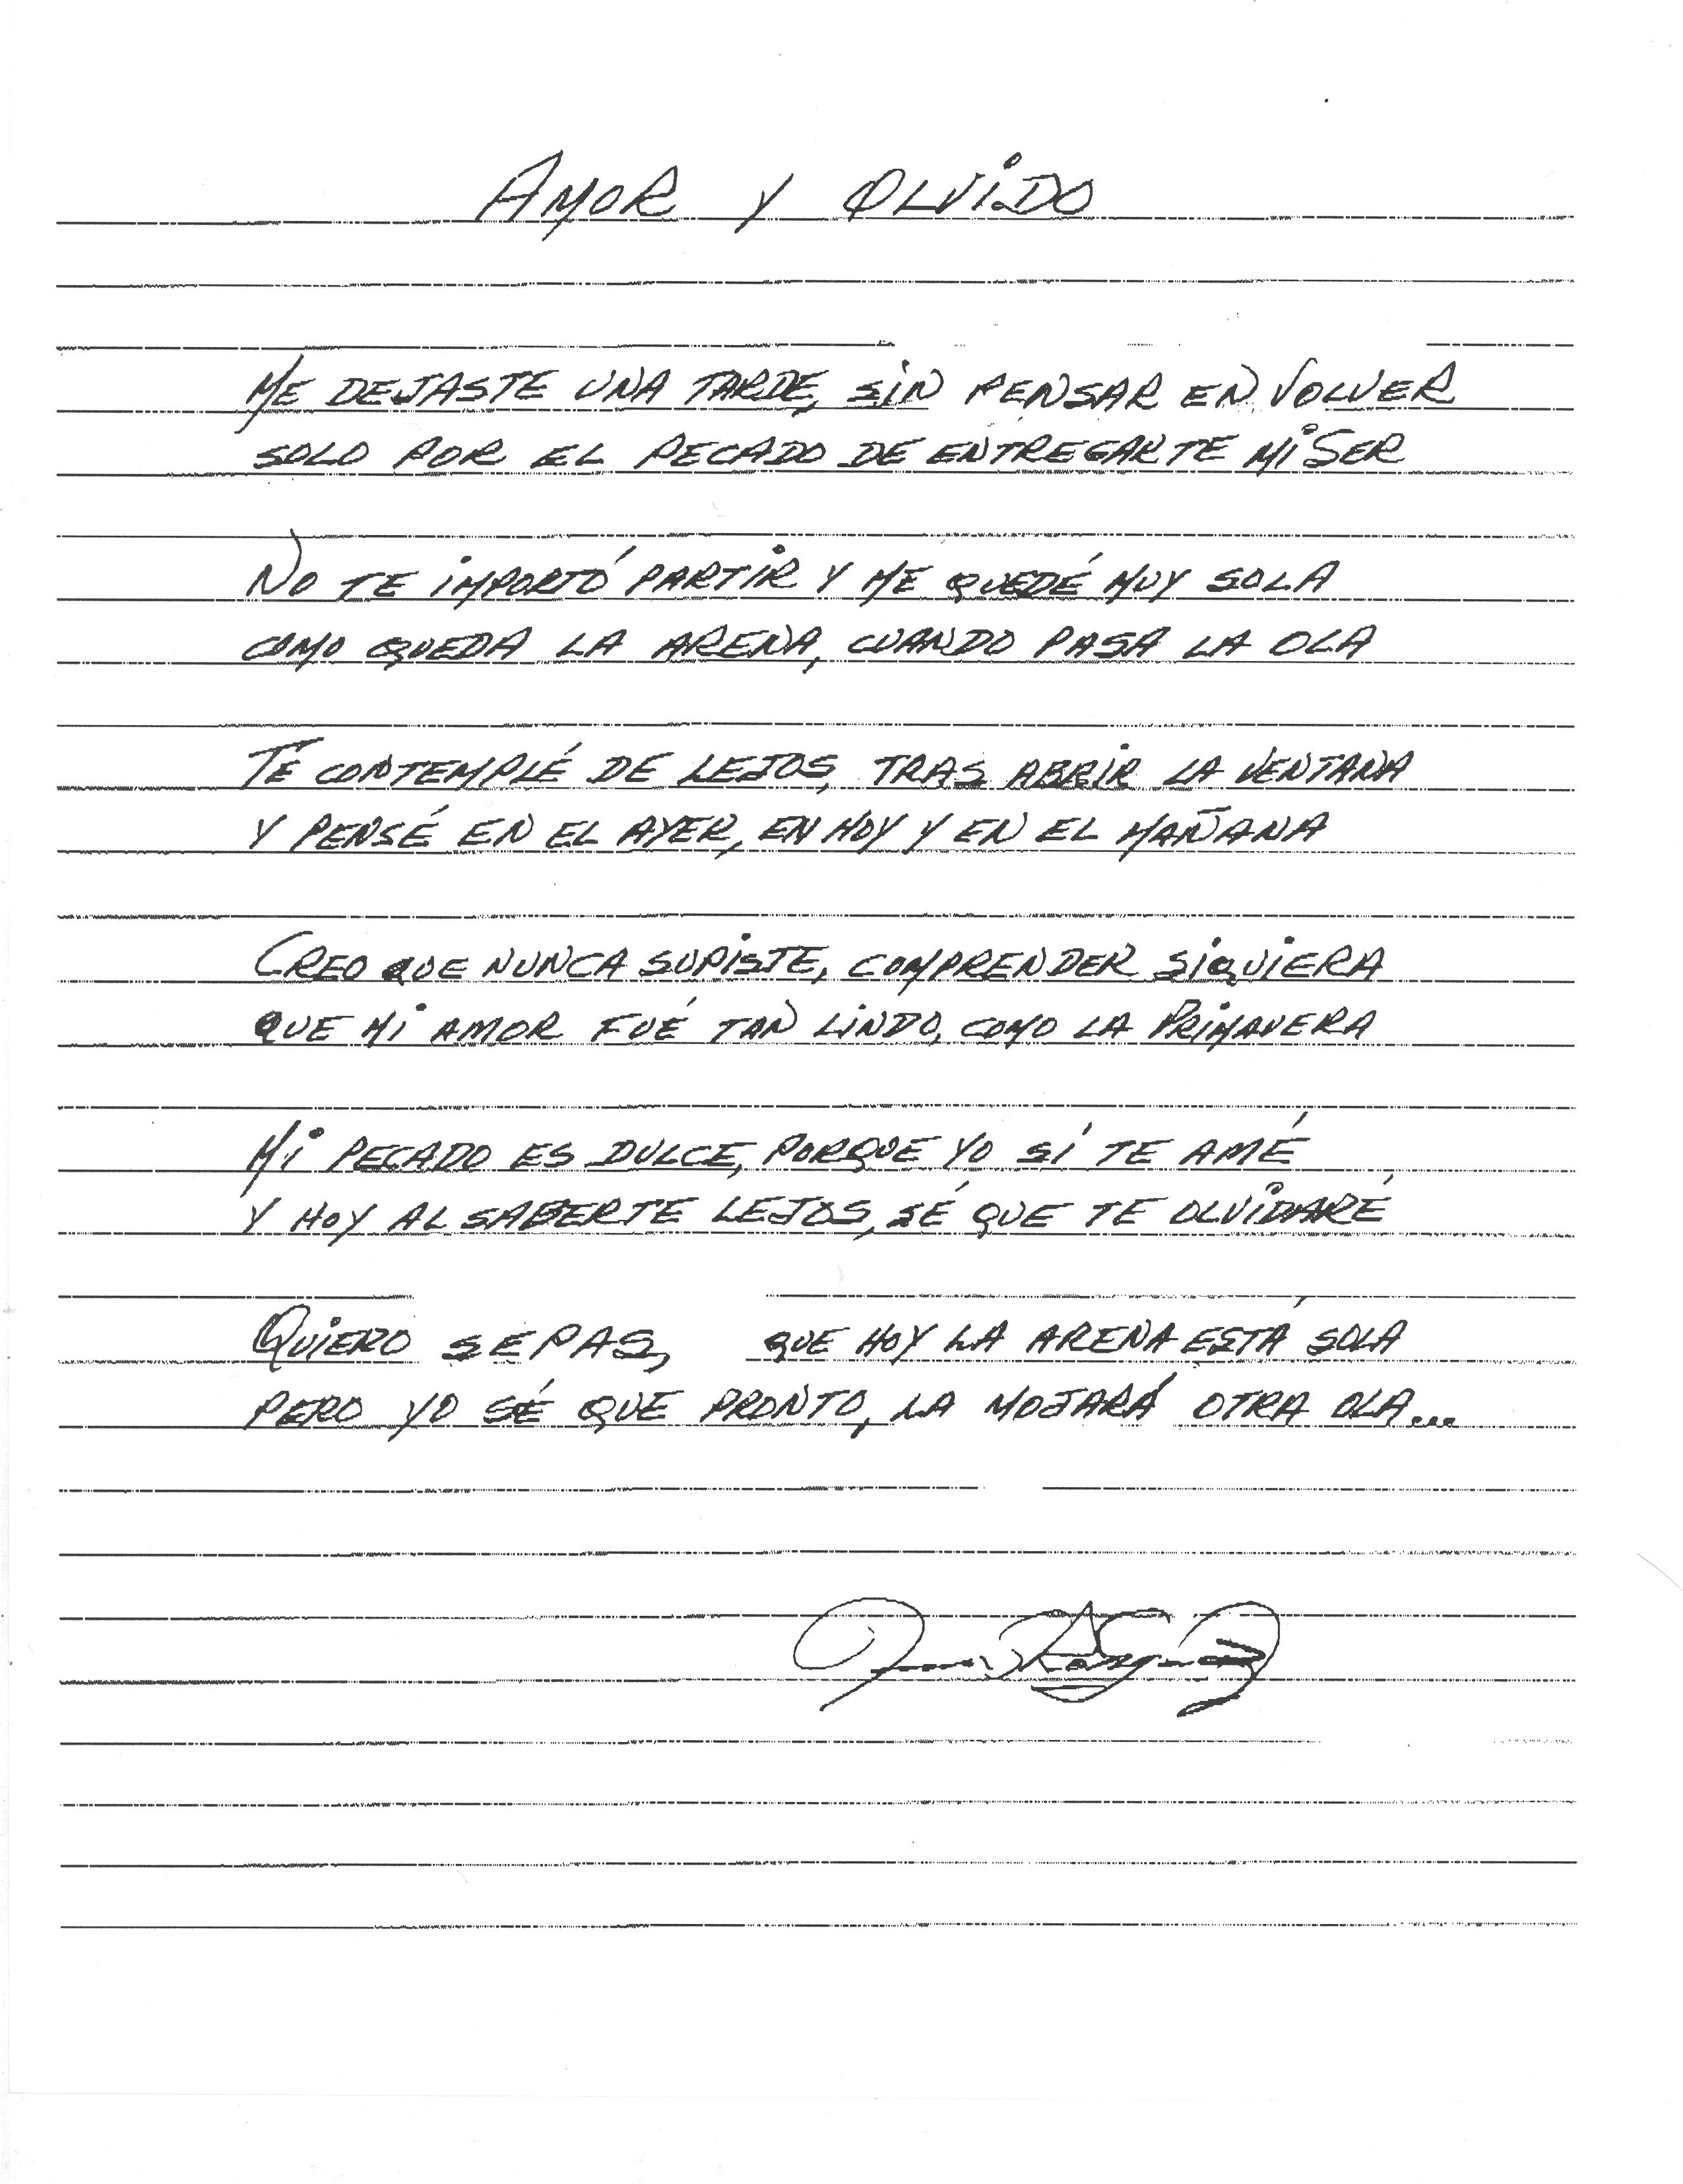 AMOR Y OLViDO
ME DEJASTE UNA TARDE, SiN PENSAR EN VOLVER
SOLO POR EL PECADO DE ENTREGARTE Mi SER
NO TE iMPORTÓ PARTiR Y ME QUEDÉ MUY SOLA
COMO QUEDA LA ARENA, CUANDO PASA LA OLA
TE CONTEMPLÉ DE LEJOS, TRAS ABRiR LA VENTANA
Y PENSÉ EN EL AYER, EN HOY Y EN EL MAÑANA
CREO QUE NUNCA SUPiSTE, COMPRENDER SiQUiERA
QUE Mi AMOR FUÉ TAN LiNDO, COMO LA PRiMAVERA
Mi PECADO ES DULCE, PORQUE YO SÍ TE AMÉ
Y HOY AL SABERTE LEJOS, SÉ QUE TE OLViDARÉ
QUiERO SEPAS, QUE HOY LA ARENA ESTÁ SOLA
PERO YO SÉ QUE PRONTO, LA MOJARÁ OTRA OLA...